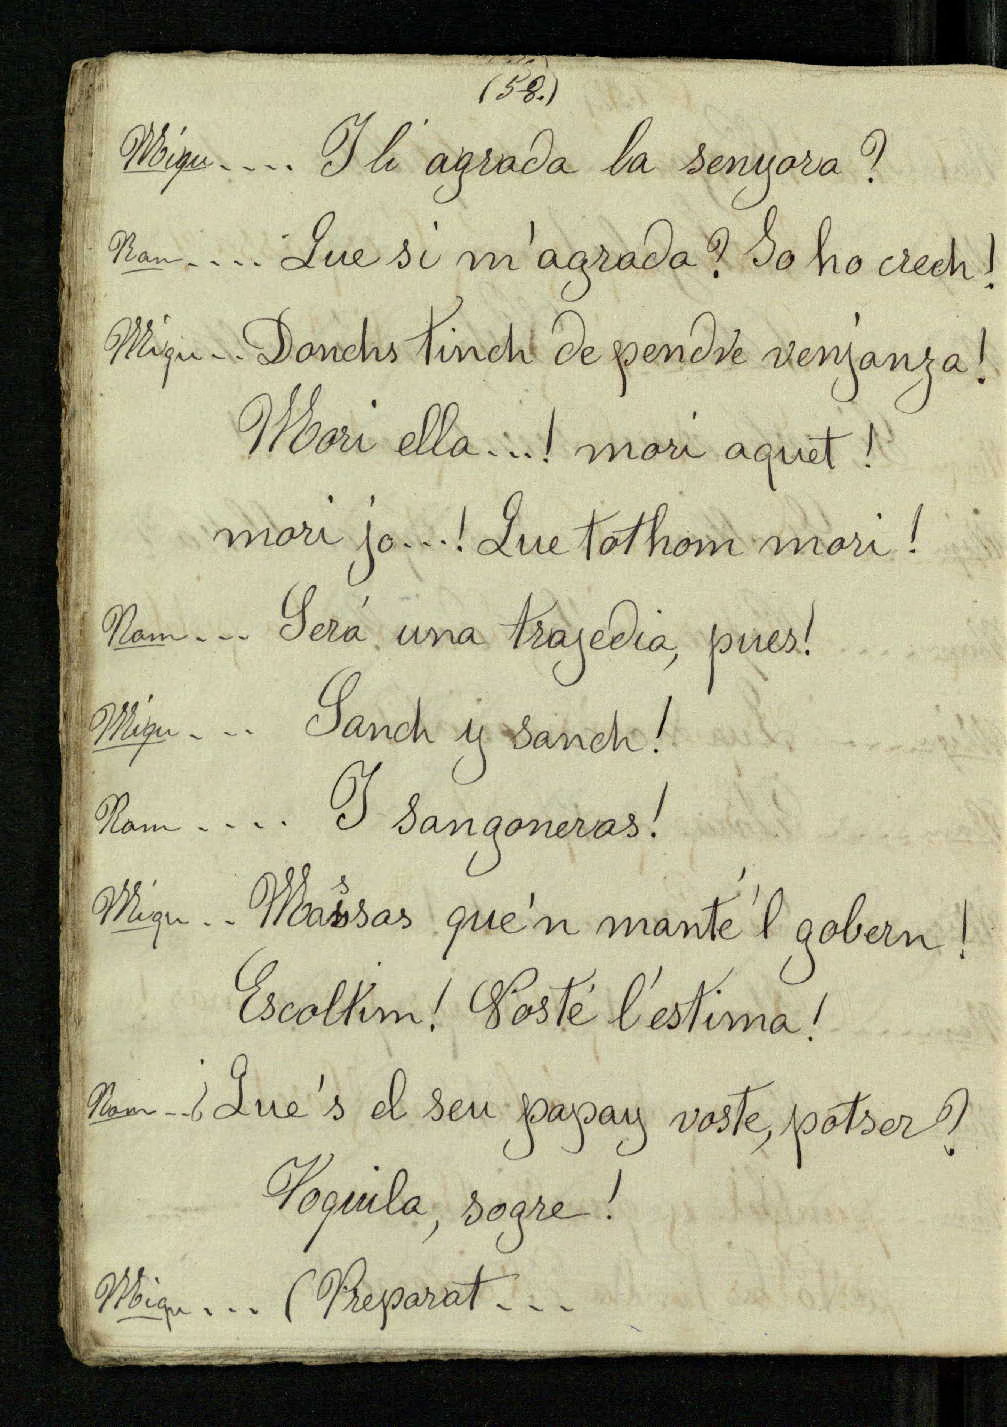 (58.)
Miqu.... I li agrada la senyora?
Ram.... Que si m'agrada? Ja ho crech!
Miqu... Donchs tinch de pendre venjanza!
Mori ella...! mori aquet!
mori jo...! Que tothom mori!
Ram... Será una trajedia, pues!
Miqu... Sanch y sanch!
Ram.... I sangoneras!
Miqu.. Massas que'n manté'l gobern!
Escoltim! Vosté l'estima!
Ram..¿Que's el seu papay voste, potser?
Voquila, sogre!
Miqu... (Preparat...